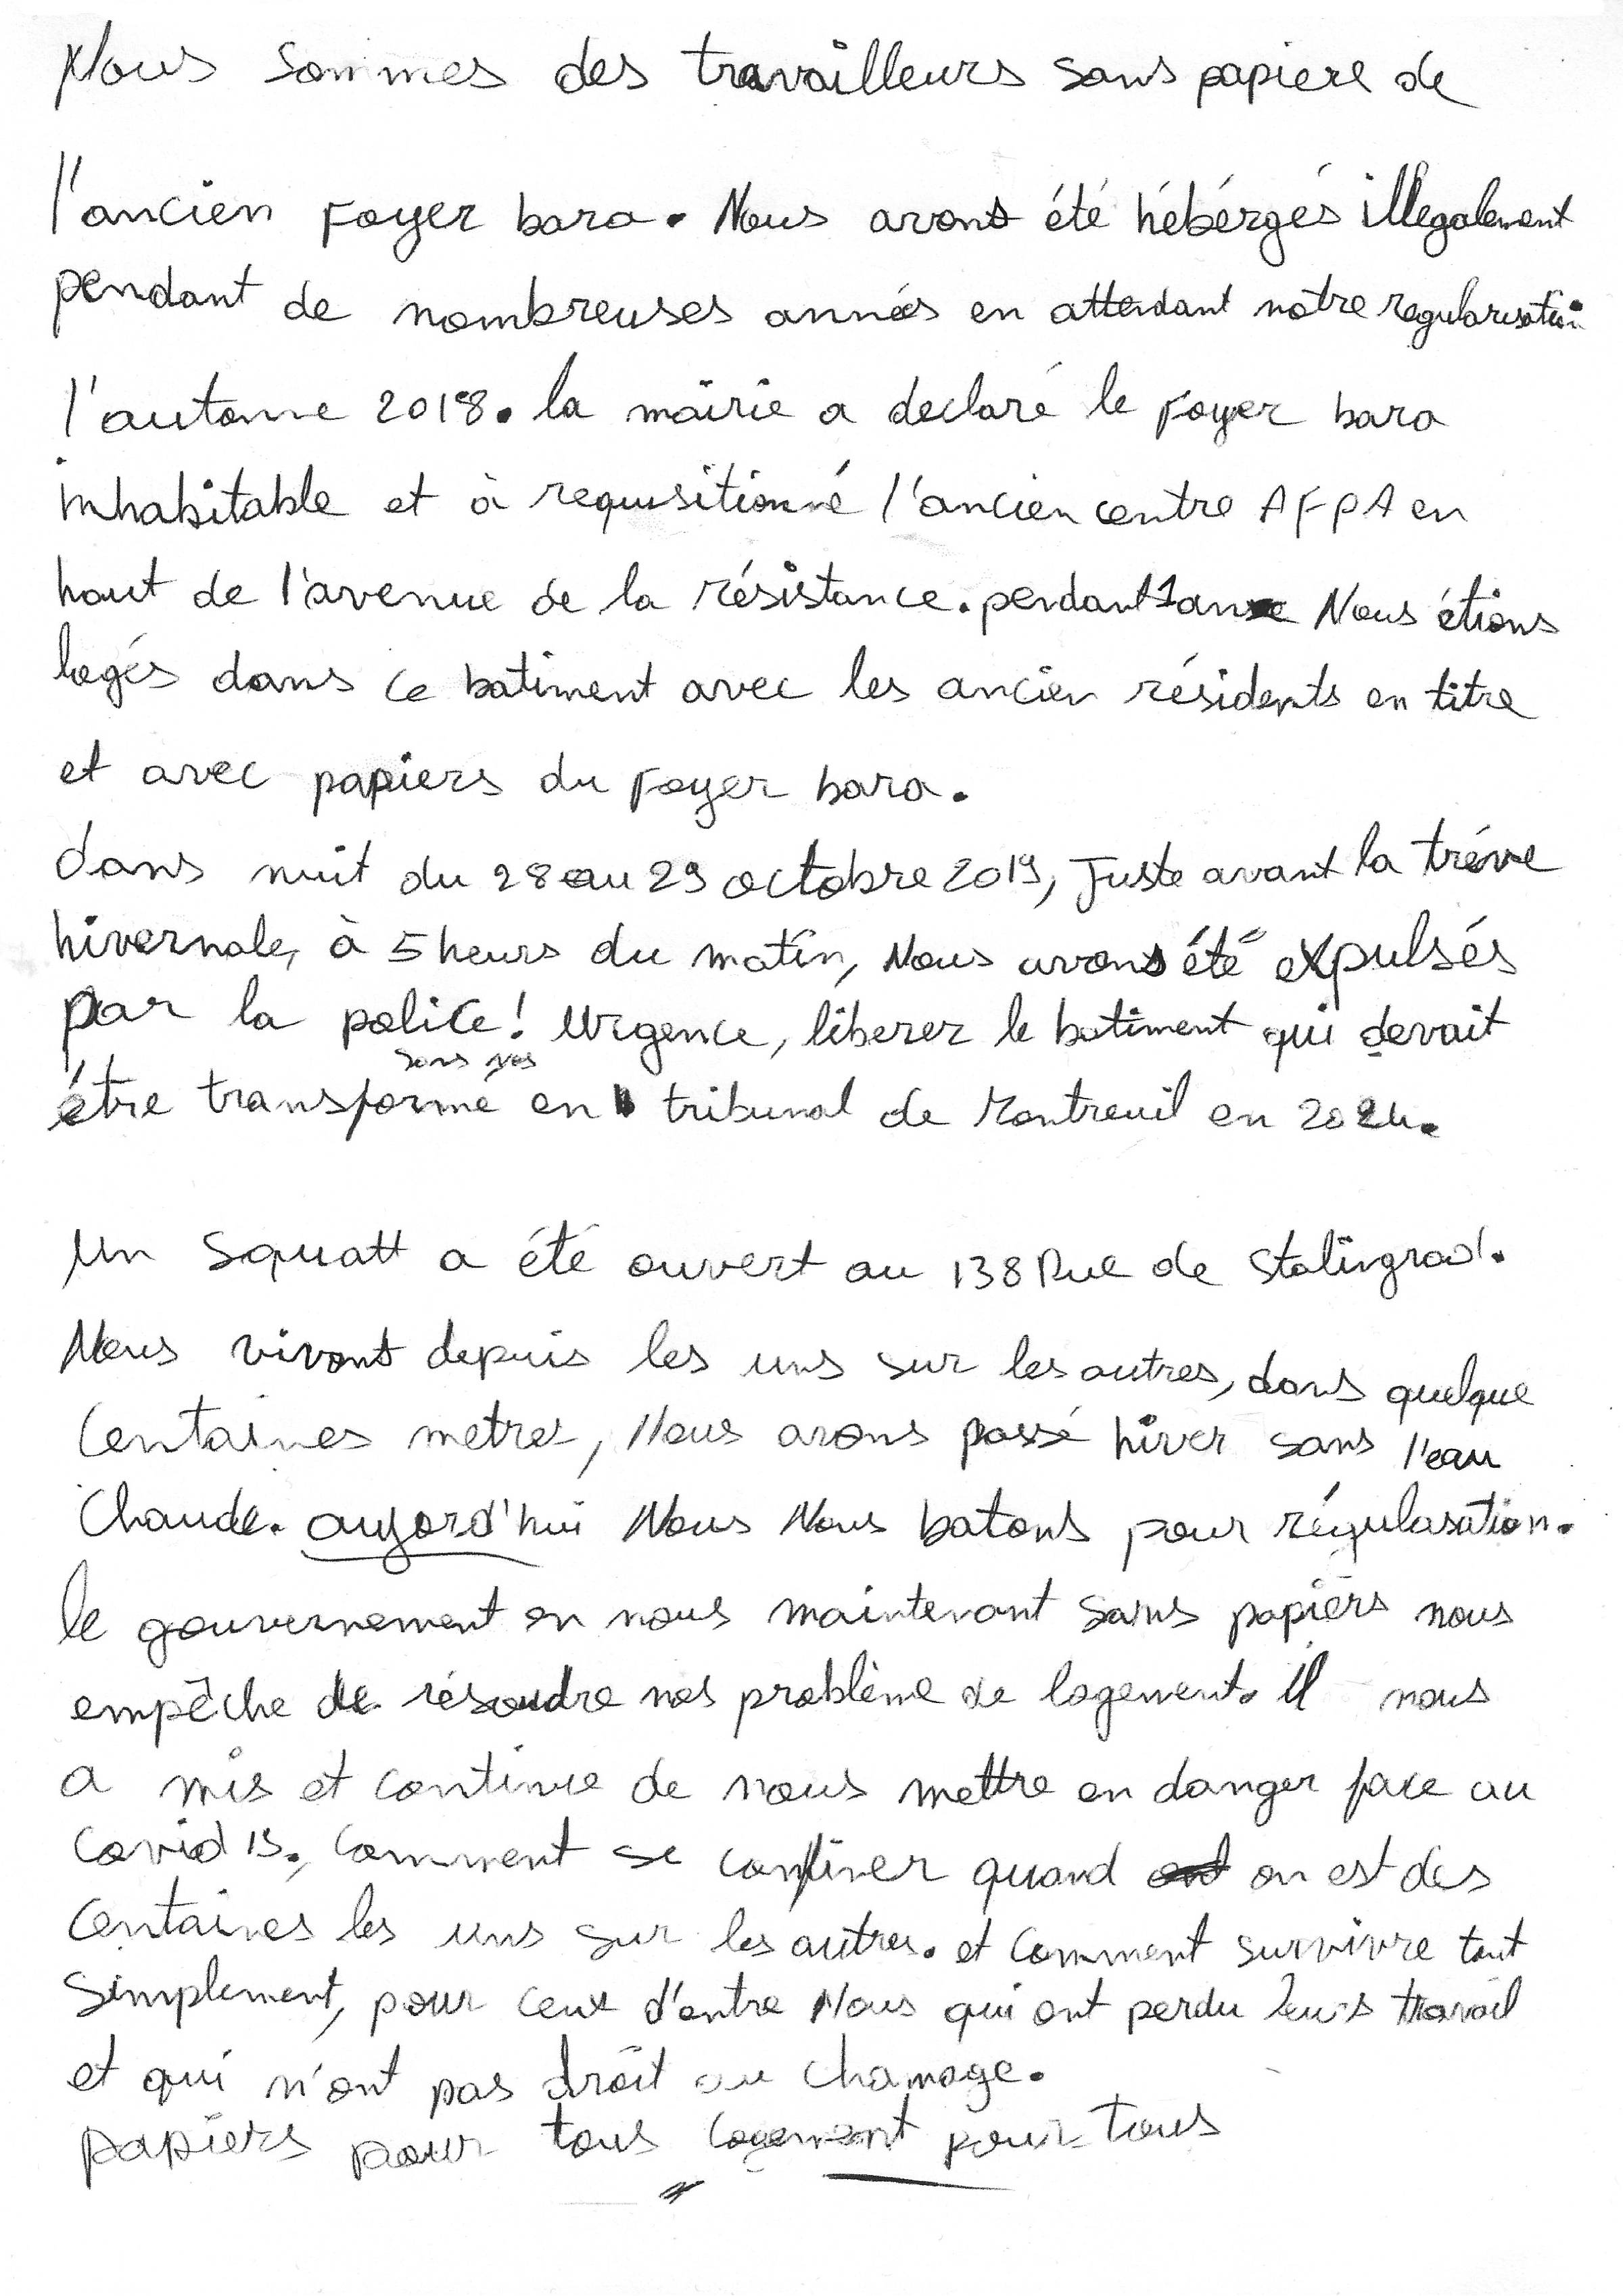 Nous sommes des travailleurs sans papiere de
l'ancien Foyer bara. Nous avons été hébérgés illegalement
pendant de nombreuses années en attendant notre regularisation
l'automne 2018. la mairie a declaré le Foyer bara
inhabitable et à requisitionné l'ancien centre AFPA en
haut de l'avenue de la résistance. pendant 1 an Nous étions
logés dans ce batiment avec les ancien résidents en titre
et avec papiers du Foyer bara.
dans nuit du 28 au 29 octobre 2019, Juste avant la tréve
hivernale, à 5 heurs du matin, Nous avons été expulsés
par la police! Urgence, liberer le batiment qui devait
être transformé en tribunal de Montreuil en 2024.
Un Squatt a été ouvert au 138 Rue de Stalingrad.
Nous vivons depuis les uns sur les autres, dans quelque
Centaines metres, Nous avons passé hiver sans l'eau
Chaude. aujord'hui Nous Nous batons pour régulasation.
le gouvernement en nous maintenant sans papiers nous
empêche de résoudre nos problème de logement. Il nous
a mis et continue de nous mettre en danger face au
Covid 19. Comment se confiner quand on est des
Centaines les uns sur les autres. et Comment survivre tout
Simplement, pour ceux d'entre Nous qui ont perdu leurs travail
et qui n'ont pas droit au chamage.
papiers pour tous logement pour tous